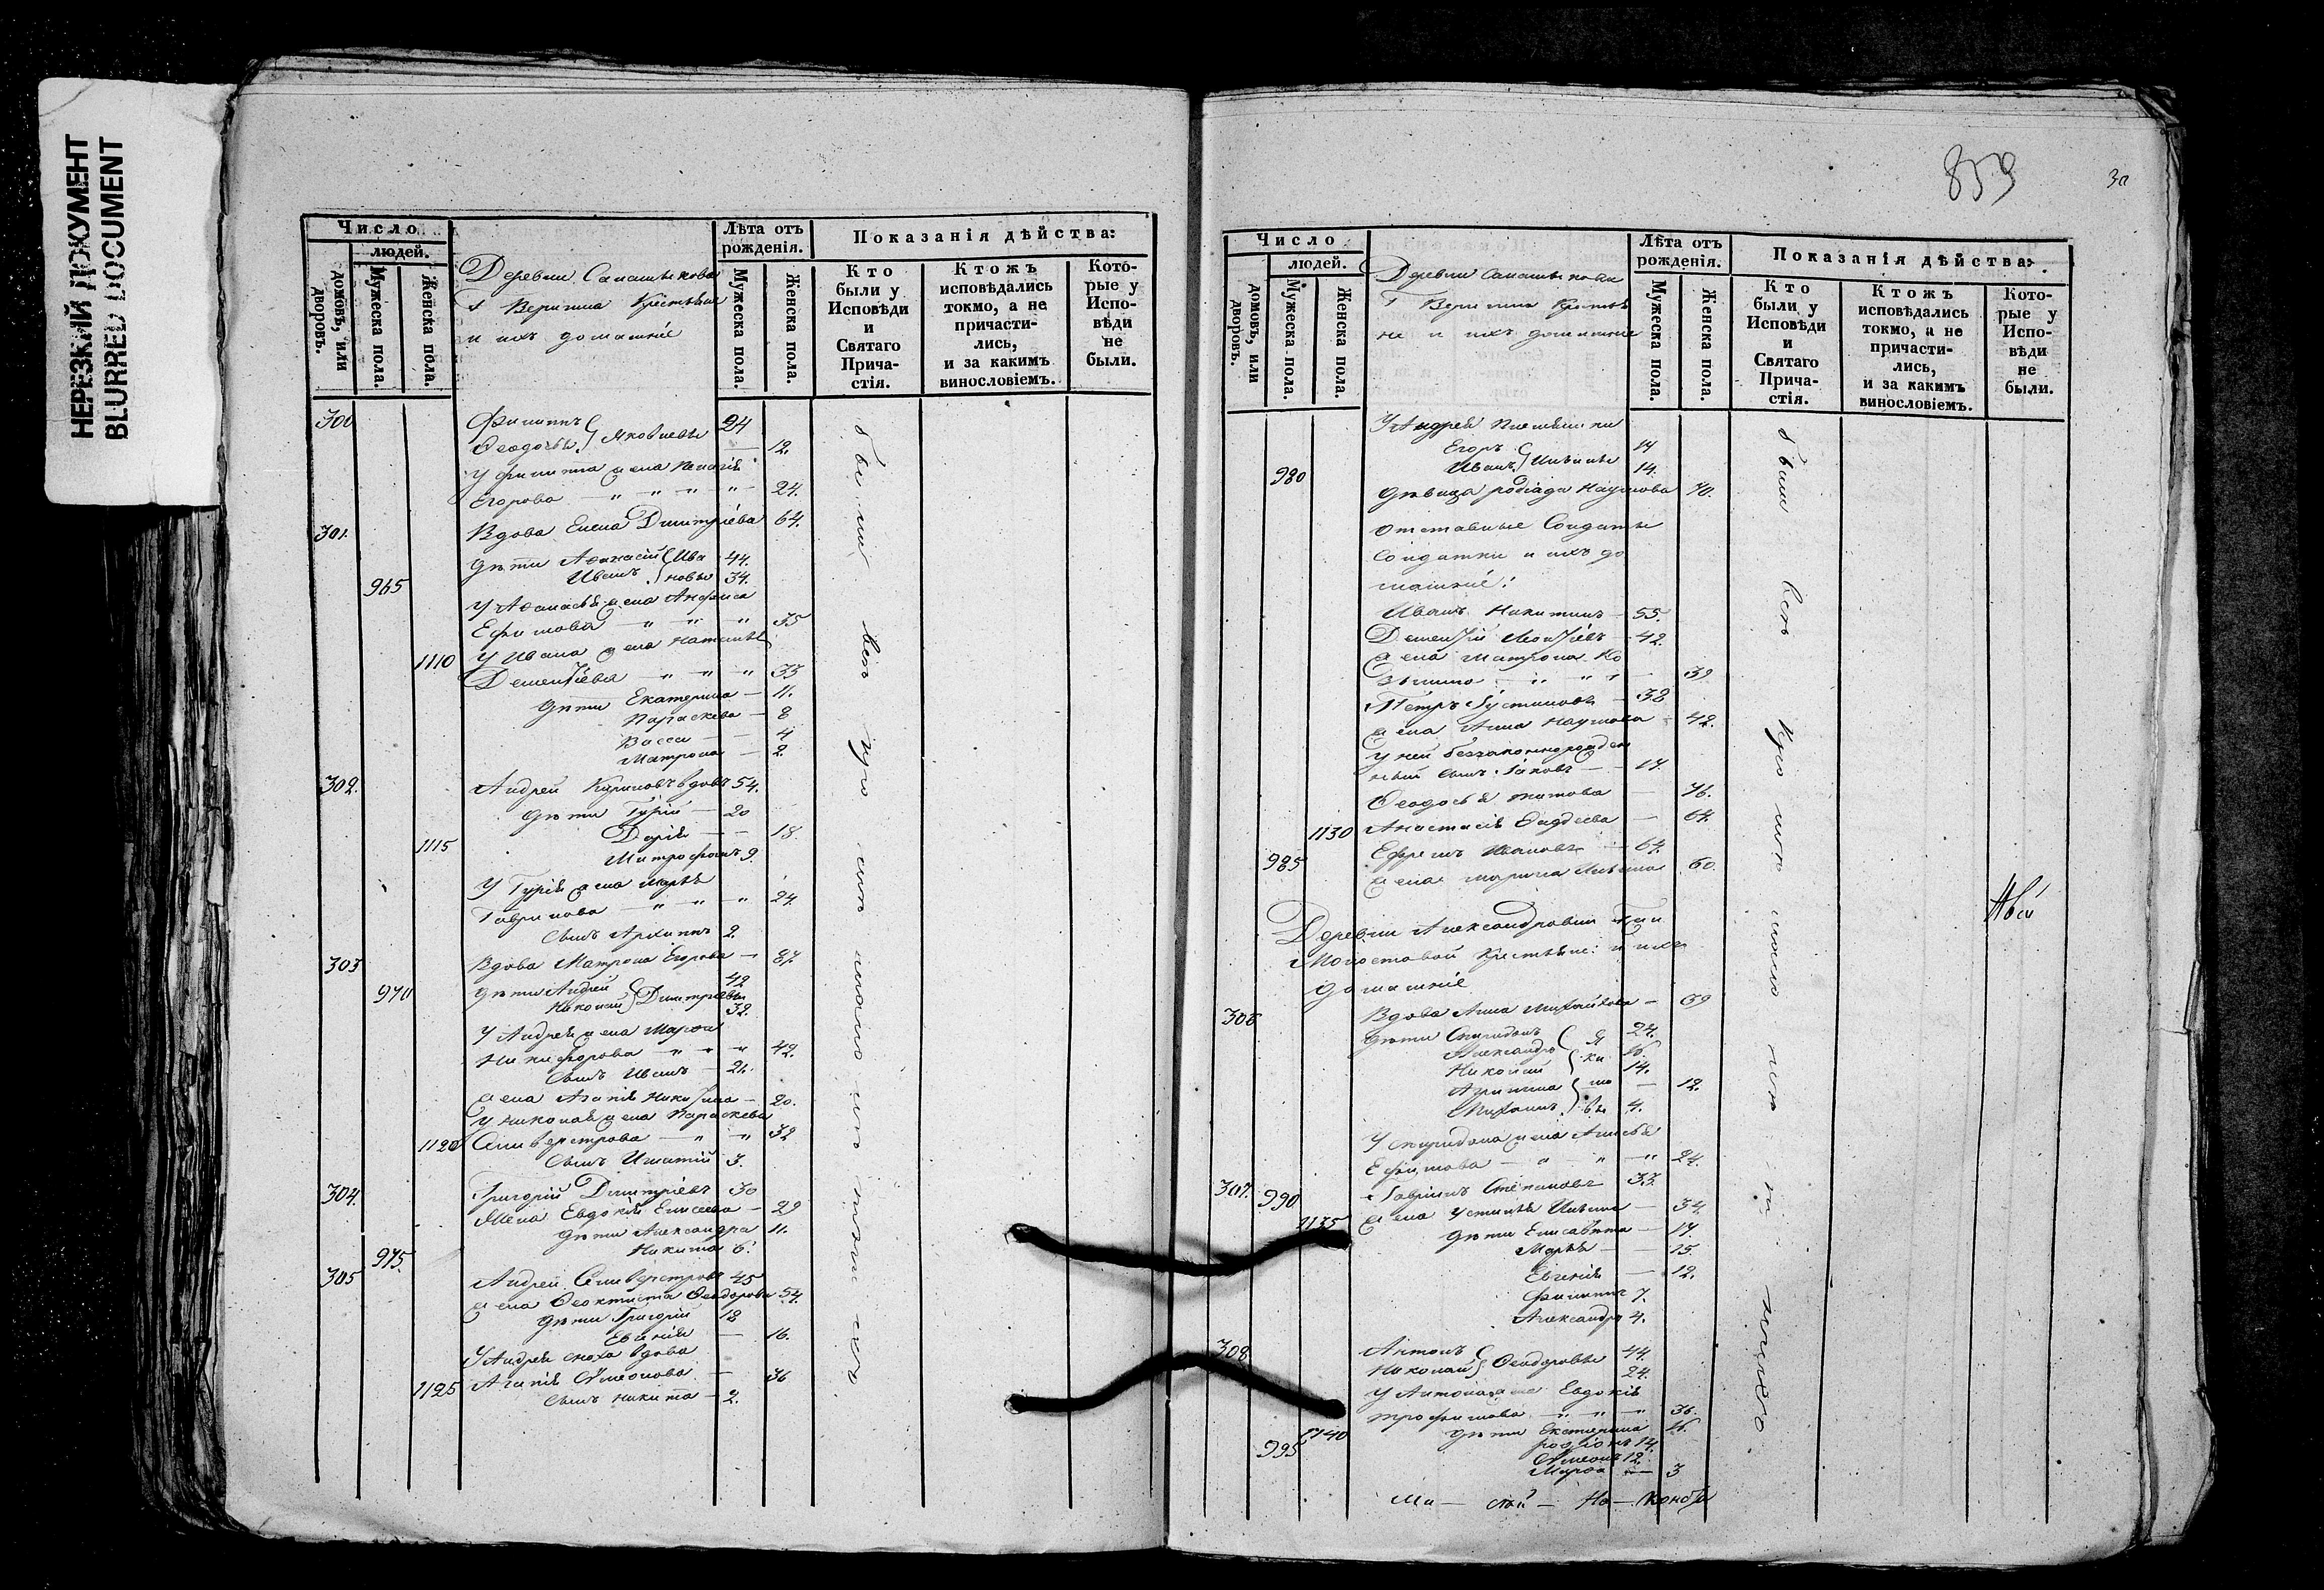 НЕРЕЗКИЙ ДОКУМЕНТ
BLURRED DOCUMENT
Число
людей.
домовъ, или дворовъ.
Мужеска пола.
Женска пола.
Деревни
Крестьяне
и ихъ домашніе
Лѣта отъ рожденія.
Мужеска пола.
Женска пола.
Показанія дѣйства:
Кто были у Исповѣди и Святаго Причастія.
Ктожъ исповѣдались токмо, а не причастились, и за какимъ винословіемъ.
Которые у Исповѣди не были.
300 Филиппъ 24
Феодосья Яковлевы — 12.
У Филиппа жена Пелагія
Егорова — " " " " — 24.
301. Вдова Елена Дмитріева 64.
дѣти Афанасій Ива 44.
965 Иванъ новы 34.
У Афанасья жена Анфиса
Ефимова — " " " 35
1110 У Ивана жена Наталья
Дементіева — " " " 33
дѣти Екатерина — 11.
Параскева — 8
Васса — — 4
Матрона — 2.
302. Андрей Кириловъ вдовъ 54.
дѣти Гурій — 20
1115 Дарія — — 18.
Митрофанъ 9.
У Гурія жена Марья
Гаврилова — " " " 24.
Сынъ Архиппъ 2.
303 Вдова Матрона Егорова — 87.
дѣти Андрей 42
970 Николай Дмитріевы 32.
У Андрея жена Марфа
Никифорова — " " " 42.
Сынъ Иванъ — 21.
жена Агапія Никитина — 20.
У Николая жена Параскева
1120 Селиверстрова — " " 32
Сынъ Игнатій 3.
304. Григорій Дмитріевъ 30
Жена Евдокія Елисеева — 29
дѣти Александра 11.
975. Никита 6.
305 Андрей Селиверстровъ 45
жена Феоктиста Феодорова 54.
дѣти Григорій 18
Евгенія — 16.
У Андрея сноха вдова
1125 Агапія Симеонова — 36
Сынъ Никита — 2.
были
859
30
Число
людей.
домовъ, или дворовъ.
Мужеска пола.
Женска пола.
Деревни
Крестья
не и ихъ домашніе
Лѣта отъ рожденія.
Мужеска пола.
Женска пола.
Показанія дѣйства:
Кто были у Исповѣди и Святаго Причастія.
Ктожъ исповѣдались токмо, а не причастились, и за какимъ винословіемъ.
Которые у Исповѣди не были.
У Андрея племянники
Егоръ 14
980 Иванъ Ильины 14.
дѣвица Наумова 70.
Отставные Солдаты
Солдатки и ихъ до
машніе:
Иванъ Никитинъ — 55.
Дементій Леонтіевъ — 42.
жена Матрона Ко
39
Петръ Густиновъ — 38
жена Анна Наумова — 42.
У ней беззаконнорожден
ный сынъ Іаковъ — — 17.
Феодосья Титова — 76.
1130 Анастасія Фаддеева — 64.
985 Ефремъ Ивановъ — 64.
жена Марина Ильина 60.
Деревни Александровки
Крестьяне и ихъ
домашніе
306 Вдова Анна Михайлова — 69
дѣти Спиридонъ Я 24.
Александръ ки 16.
Николай 14.
Агрипина мо — 12.
Михаилъ вы 4.
У Спиридона жена Анисья
Ефимова — " " " 24.
307. 990 Гаврилъ Степановъ 33
1135 жена Устинья Ильина — 34.
дѣти Елисавета — 17.
Марья — — 15.
Евгенія — 12.
Филиппъ 7.
Александръ 4.
308. Антонъ 44.
Николай Феодоровы 24.
У Антона жена Евдокія
Трофимова " " " 36.
1140 дѣти Екатерина 16.
995 Родіонъ 14.
Симеонъ 12.
Марфа — 3
были